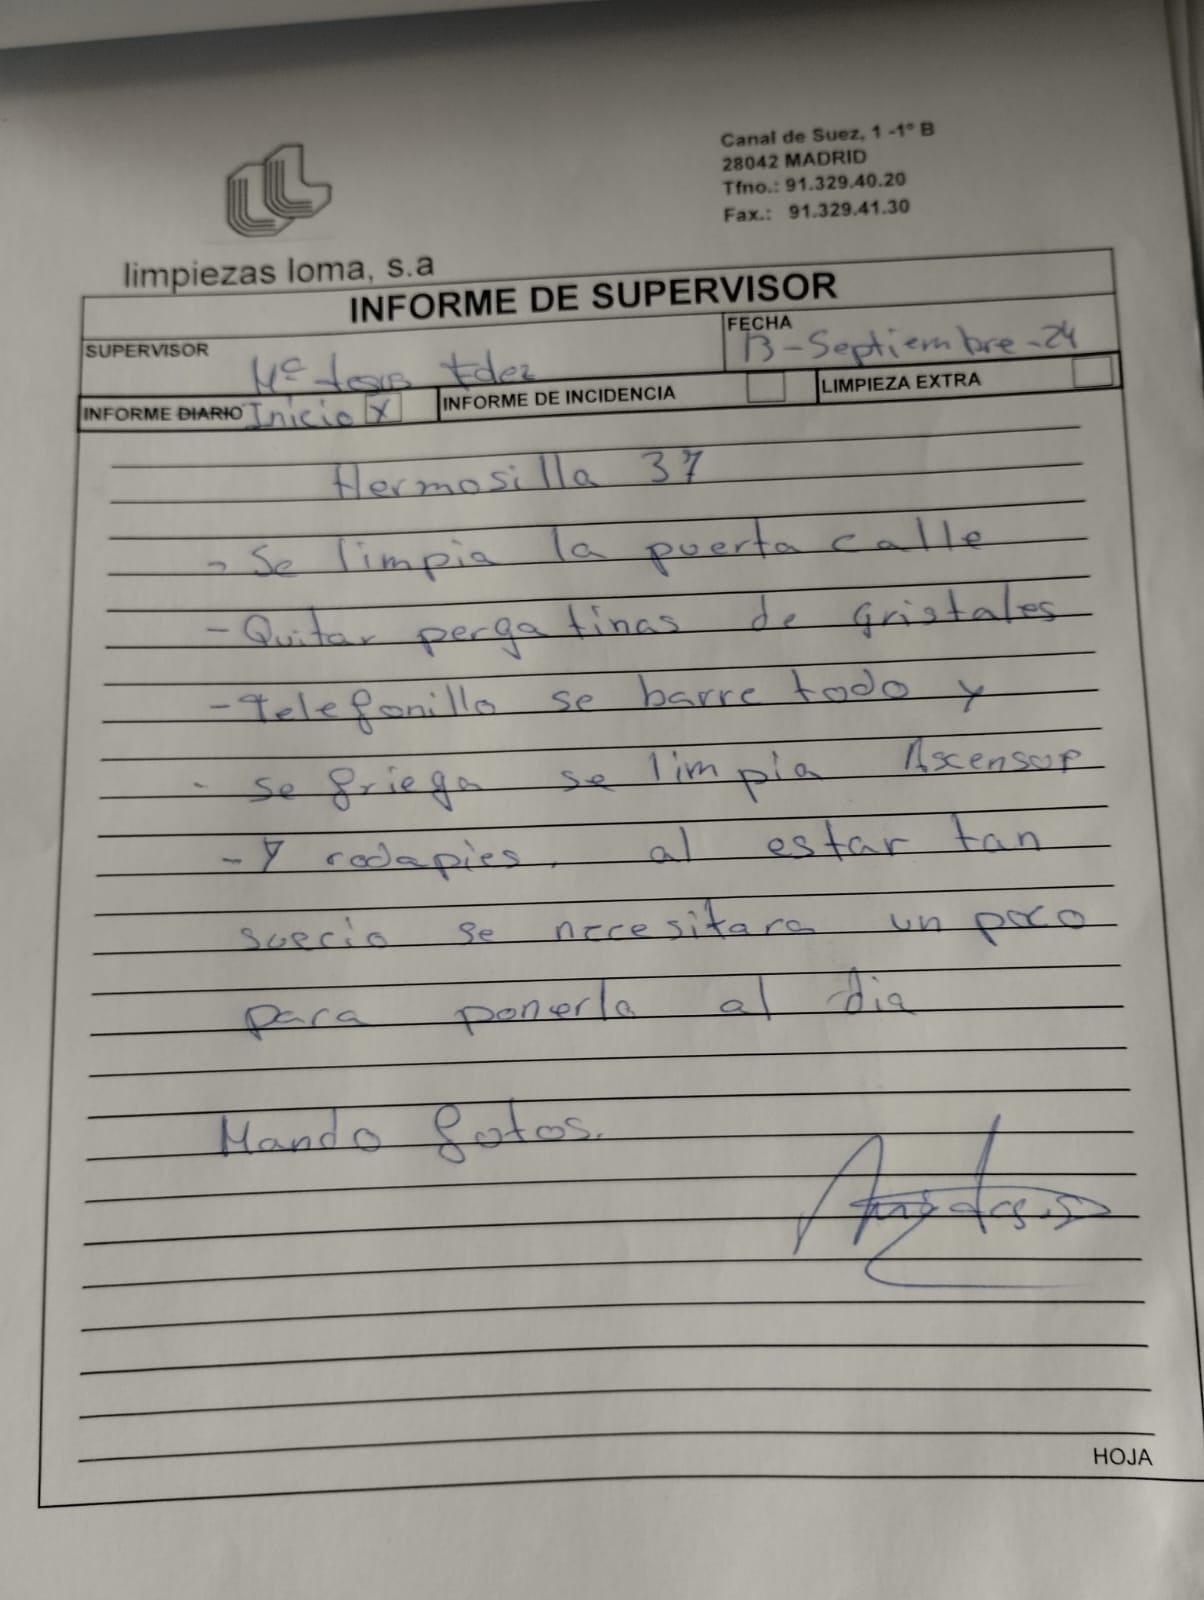 Canal de Suez, 1 -1º B
28042 MADRID
Tfno.: 91.329.40.20
Fax.: 91.329.41.30
limpiezas loma, s.a
INFORME DE SUPERVISOR
SUPERVISOR Mª Jesus Fdez
FECHA 13-Septiembre-24
INFORME DIARIO Inicio X INFORME DE INCIDENCIA LIMPIEZA EXTRA
Hermosilla 37
- Se limpia la puerta calle
- Quitar pergatinas de Gristales
- telefonillo se barre todo y
- se friega se limpia Ascensor
- Y rodapies, al estar tan
suecio se necesitara un poco
para ponerla al dia
Mando fotos.
HOJA